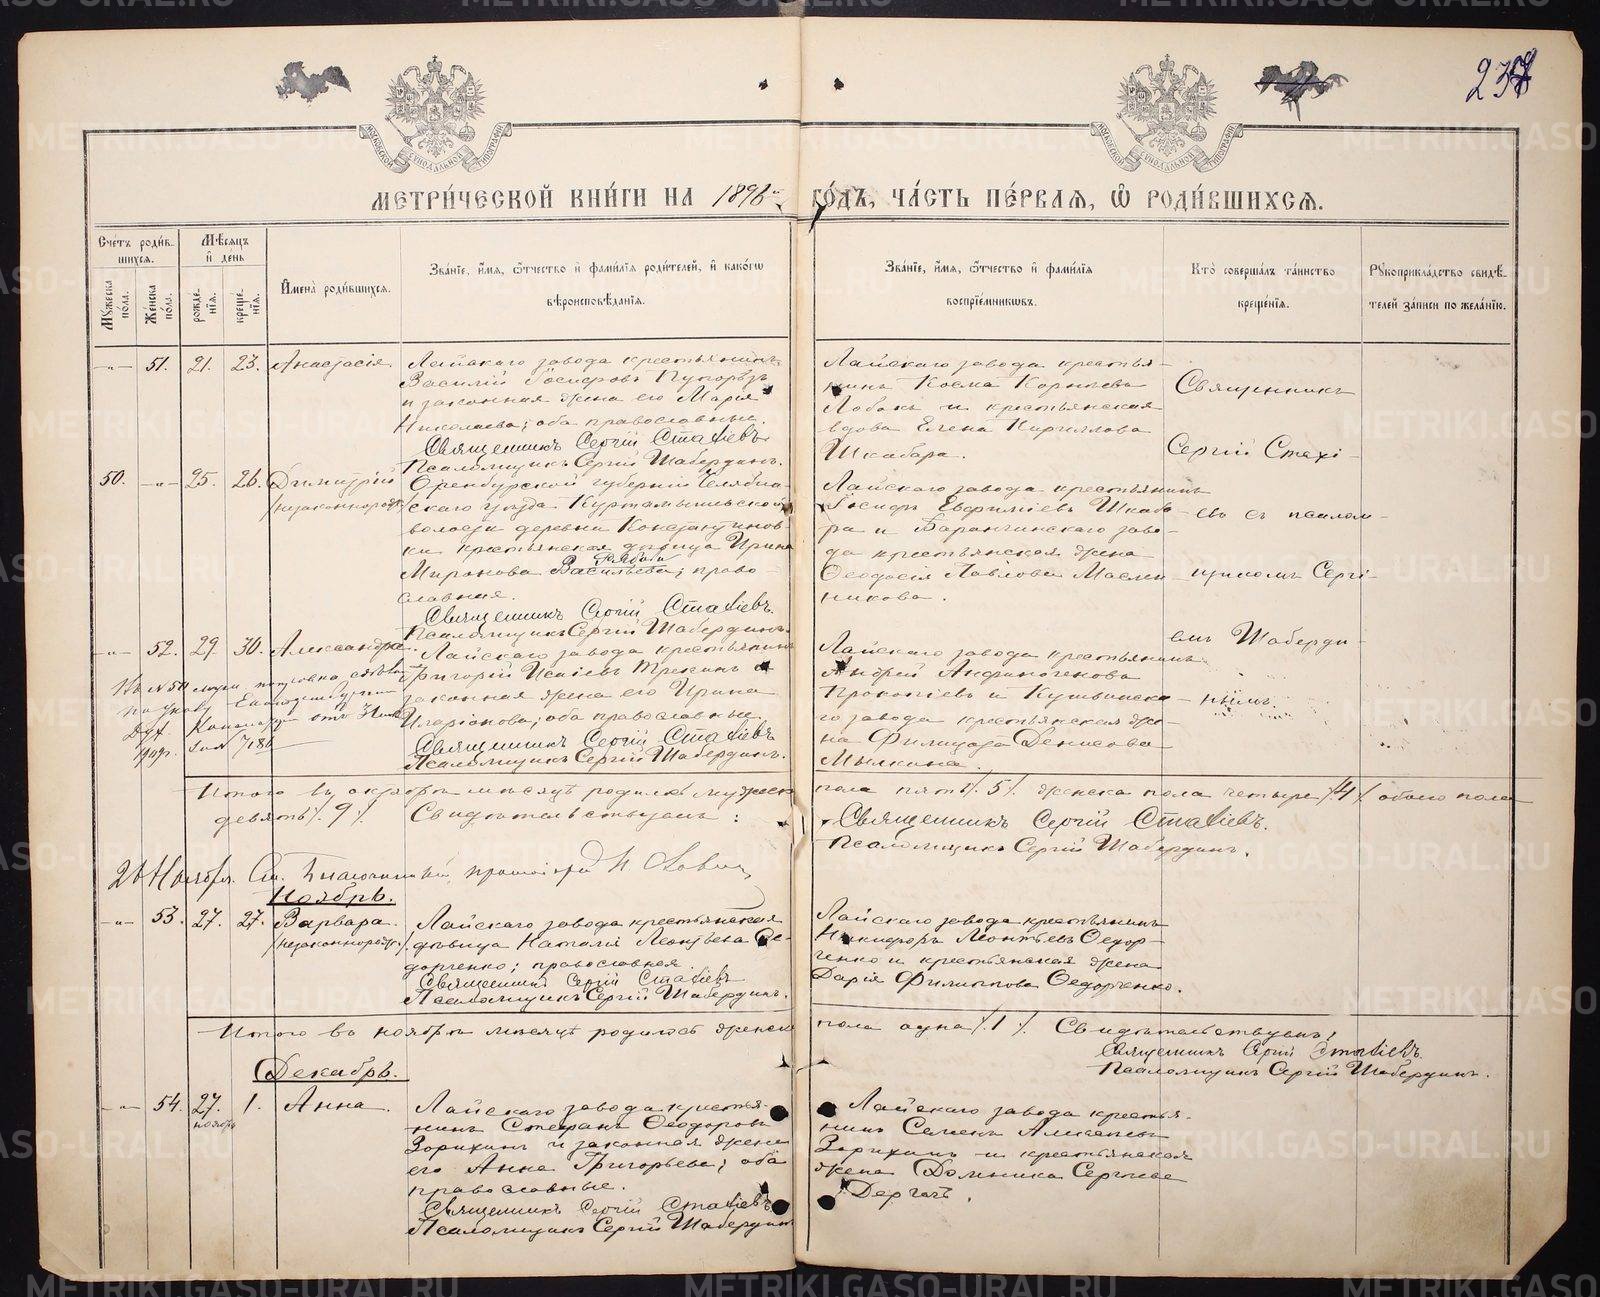 238
МЕТРИ́ЧЕСКОЙ КНИ́ГИ НА 1896й ГО́ДЪ, ЧА́СТЬ ПЕ́РВАѦ, Ѡ҆ РОДИ́ВШИХСѦ.
Сче́тъ роди́вшихсѧ.
Мѣ́сѧцъ и҆ де́нь
Мꙋ́жеска по́ла.
Же́нска по́ла.
рожде́нїѧ.
креще́нїѧ.
И҆мена̀ роди́вшихсѧ.
Зва́нїе, и҆́мѧ, ѻ҆́тчество и҆ фами́лїѧ роди́телей, и҆ како́гѡ
вѣроисповѣ́данїѧ.
Зва́нїе, и҆́мѧ, ѻ҆́тчество и҆ фами́лїѧ
воспрїе́мникѡвъ.
Кто̀ соверша́лъ та́инство
креще́нїѧ.
Рꙋкоприкла́дство свидѣ́телей за́писи по жела́нїю.
-"- 51. 21. 23. Анастасія
Лайскаго завода крестьянинъ
Василій Іосифовъ
и законная жена его Марія
Николаева; оба православные.
Священникъ Сергій Стахіевъ.
Псаломщикъ Сергій Шабердинъ.
Лайскаго завода крестья-
нинъ Косма Корнѣевъ
Лобакъ и крестьянская
вдова Елена Кириллова
Шкабара.
Священникъ
Сергій Стахі-
50. -"- 25. 26. Димитрій
/незаконнорожд./
Оренбургской губерніи Челябин-
скаго уѣзда Куртамышевской
волости деревни Константинов-
ки крестьянская дѣвица Ирина
Миронова Васильева; право-
славная.
Священникъ Сергій Стахіевъ.
Псаломщикъ Сергій Шабердинъ.
Лайскаго завода крестьянинъ
Іосифъ Евфиміевъ Шкаба-
ра и Баранчинскаго заво-
да крестьянская жена
Ѳеодосія Павлова Маслен-
никова.
евъ съ псалом-
щикомъ Сергі-
-"- 52. 29. 30. Александра.
Лайскаго завода крестьянинъ
Григорій Исаіевъ Трекинъ и
законная жена его Ирина
Иларіонова; оба православные.
Священникъ Сергій Стахіевъ
Псаломщикъ Сергій Шабердинъ.
Лайскаго завода крестьянинъ
Андрей Андрониковъ
Прокопіевъ и Кушвинска-
го завода крестьянская же-
на Филицата Денисова
Мылкина.
емъ Шаберди-
нымъ.
Итого въ октябрѣ мѣсяцѣ родилось мужеска пола пять /5/. женска пола четыре /4/. обоего пола
девять /9/. Свидѣтельствуемъ:
Священникъ Сергій Стахіевъ.
Псаломщикъ Сергій Шабердинъ.
Ноябрь.
-"- 53. 27. 27. Варвара.
/незаконнорожд./
Лайскаго завода крестьянская
дѣвица Наталія Леонтьева Ѳе-
дорченко; православная
Священникъ Сергій Стахіевъ
Псаломщикъ Сергій Шабердинъ.
Лайскаго завода крестьянинъ
Никифоръ Леонтьевъ Ѳедор-
ченко и крестьянская жена
Дарія Филиппова Ѳедорченко.
Итого въ ноябрѣ мѣсяцѣ родилось женска пола одна /1/. Свидѣтельствуемъ:
Священникъ Сергій Стахіевъ.
Псаломщикъ Сергій Шабердинъ.
Декабрь.
-"- 54. 27. 1. Анна.
ноября
Лайскаго завода крестья-
нинъ Стефанъ Ѳеодоровъ
Зорихинъ и законная жена
его Анна Григорьева; оба
православные.
Священникъ Сергій Стахіевъ
Псаломщикъ Сергій Шабердинъ
Лайскаго завода крестья-
нинъ Семенъ Алексѣевъ
Зорихинъ и крестьянская
жена Домника Сергѣева
Дергачъ.
METRIKI.GASO-URAL.RU